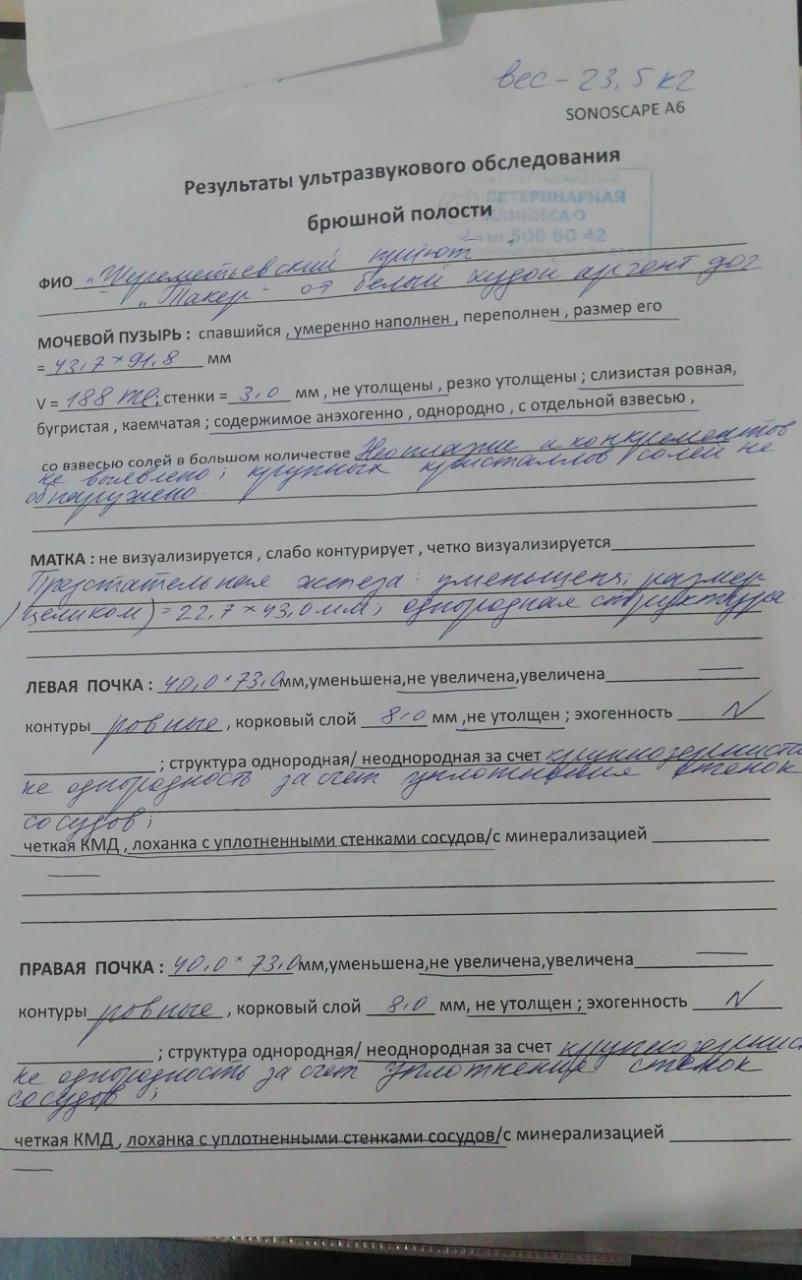 вес - 23,5 кг
SONOSCAPE A6
Результаты ультразвукового обследования
ВЕТЕРИНАРНАЯ
КЛИНИКА
брюшной полости
506 60 42
ФИО "Шереметьевский приют"
"Такер" от белый худой аргент дог
МОЧЕВОЙ ПУЗЫРЬ : спавшийся , умеренно наполнен , переполнен , размер его
= 43,7 × 91,8 мм
V = 188 ml; стенки = 3,0 мм , не утолщены , резко утолщены ; слизистая ровная,
бугристая , каемчатая ; содержимое анэхогенно , однородно , с отдельной взвесью ,
со взвесью солей в большом количестве Неоплазии и конкрементов
не выявлено; крупных кристаллов солей не
обнаружено.
МАТКА : не визуализируется , слабо контурирует , четко визуализируется
Предстательная железа: уменьшена; размер
(целиком) = 22,7 × 43,0 мм; однородная структура.
ЛЕВАЯ ПОЧКА : 40,0 × 73,0 мм,уменьшена,не увеличена,увеличена —
контуры ровные , корковый слой 8,0 мм ,не утолщен ; эхогенность N
; структура однородная/ неоднородная за счет крупнозерниста
не однородность за счет уплотнения стенок
сосудов;
четкая КМД , лоханка с уплотненными стенками сосудов/с минерализацией
—
ПРАВАЯ ПОЧКА : 40,0 × 73,0 мм,уменьшена,не увеличена,увеличена —
контуры ровные , корковый слой 8,0 мм, не утолщен ; эхогенность N
; структура однородная/ неоднородная за счет крупнозернис
не однородность за счет уплотнение стенок
сосудов ;
четкая КМД , лоханка с уплотненными стенками сосудов/с минерализацией
—